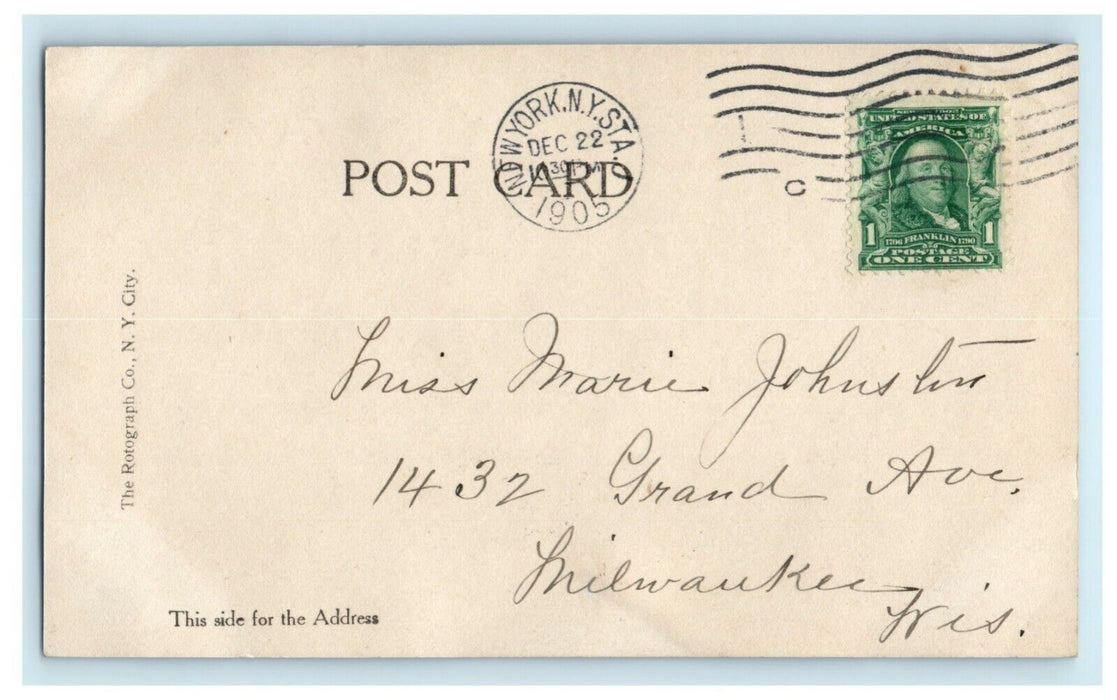 POST CARD
NEW YORK, N.Y. STA. C
DEC 22
30 PM
1905
C
UNITED STATES OF
AMERICA
1 1706 FRANKLIN 1790 1
POSTAGE
ONE CENT
The Rotograph Co., N. Y. City.
Miss Marie Johnston
1432 Grand Ave.
Milwaukee
Wis.
This side for the Address